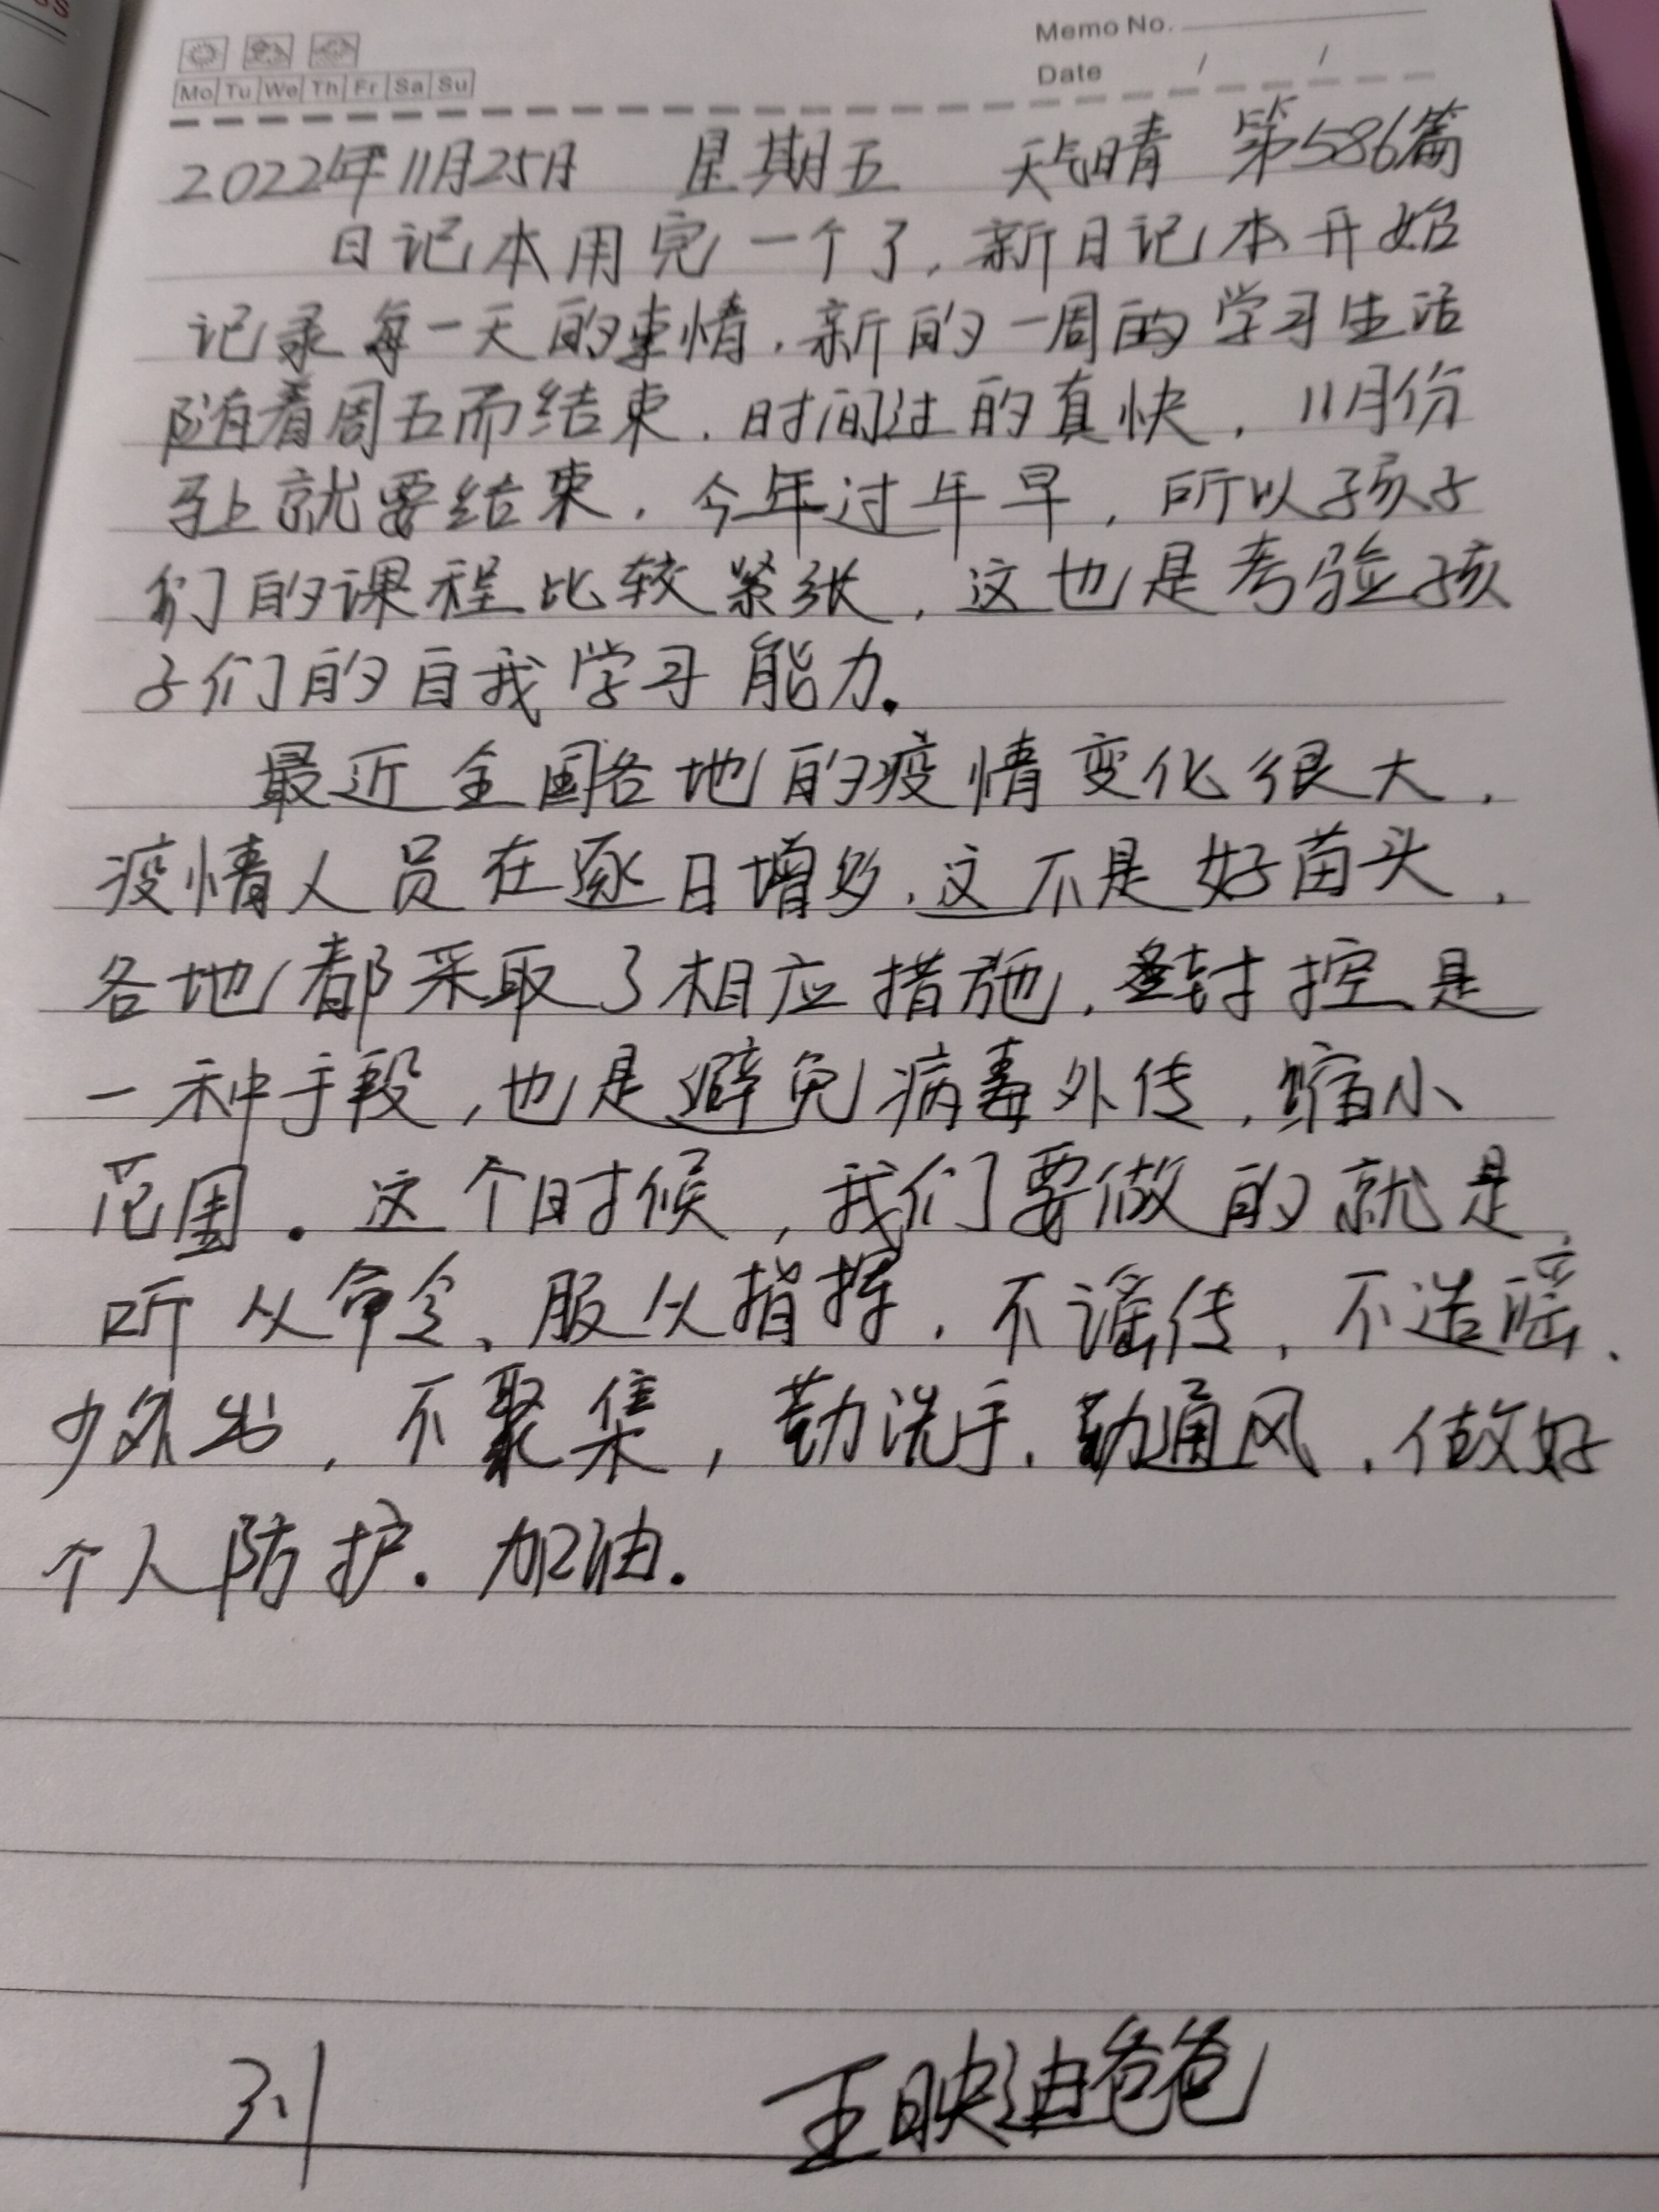 SS
Memo No.
Mo Tu We Th Fr Sa Su
Date / /
2022年11月25日 星期五 天气晴 第586篇
日记本用完一个了，新日记本开始
记录每一天的事情．新的一周的学习生活
随着周五而结束．时间过的真快，11月份
马上就要结束．今年过年早，所以孩子
们的课程比较紧张，这也是考验孩
子们的自我学习能力．
最近全国各地的疫情变化很大，
疫情人员在逐日增多．这不是好苗头，
各地都采取了相应措施．封控是
一种手段，也是避免病毒外传，缩小
范围．这个时候，我们要做的就是
听从命令、服从指挥．不谣传，不造谣、
少外出，不聚集，勤洗手．勤通风．做好
个人防护．加油．
3.1 王映迪爸爸